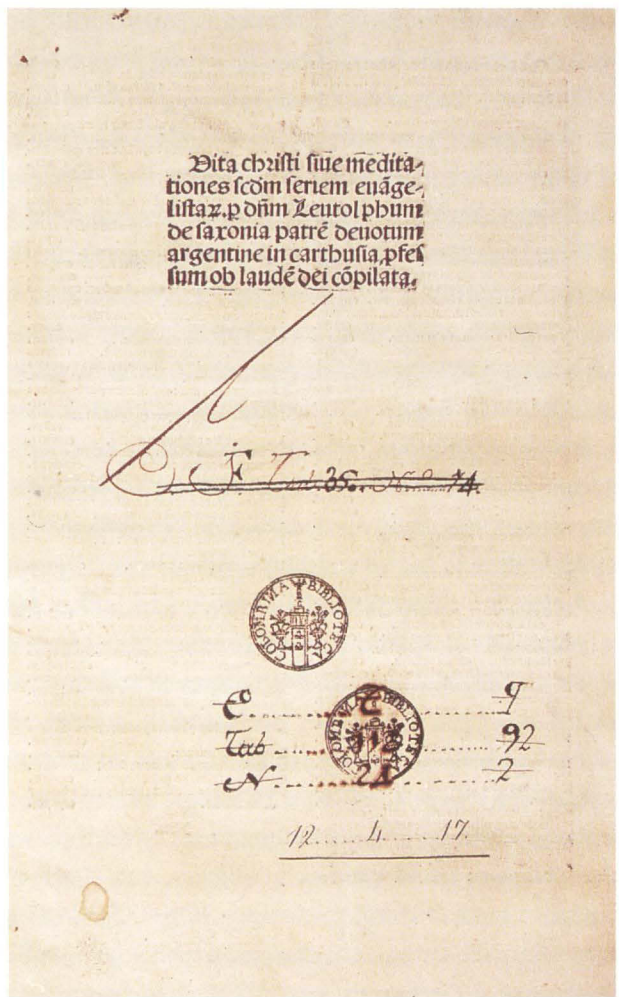 Vita christi siue medita-
tiones scdm seriem euāge-
listaꝝ. ꝑ dn̄m Leutolphum
de saxonia patrē deuotum
argentine in carthusia, ꝓfes
sum ob laudē dei cōpilata.
F Tab. 35. N. 14.
BIBLIOTECA COLOMBINA
BIBLIOTECA COLOMBINA
Tab 92
N 2
12 4 17